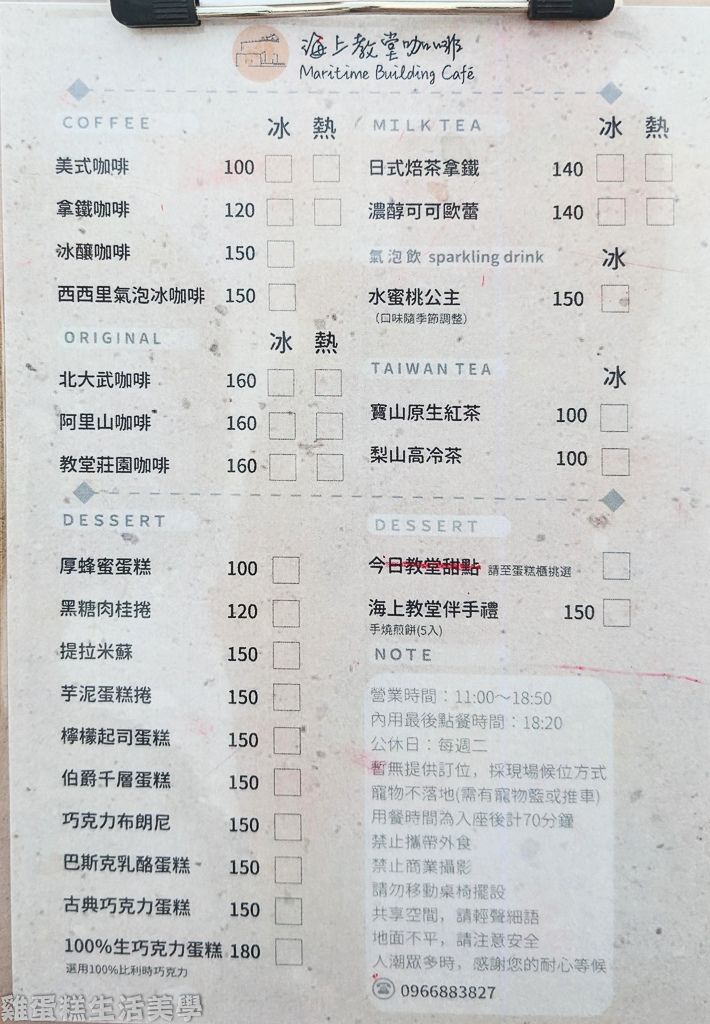 海上教堂咖啡
Maritime Building Café
COFFEE 冰 熱
美式咖啡 100
拿鐵咖啡 120
冰釀咖啡 150
西西里氣泡冰咖啡 150
ORIGINAL 冰 熱
北大武咖啡 160
阿里山咖啡 160
教堂莊園咖啡 160
MILK TEA 冰 熱
日式焙茶拿鐵 140
濃醇可可歐蕾 140
氣泡飲 sparkling drink 冰
水蜜桃公主 150
（口味隨季節調整）
TAIWAN TEA 冰
寶山原生紅茶 100
梨山高冷茶 100
DESSERT
厚蜂蜜蛋糕 100
黑糖肉桂捲 120
提拉米蘇 150
芋泥蛋糕捲 150
檸檬起司蛋糕 150
伯爵千層蛋糕 150
巧克力布朗尼 150
巴斯克乳酪蛋糕 150
古典巧克力蛋糕 150
100%生巧克力蛋糕 180
選用100%比利時巧克力
DESSERT
今日教堂甜點 請至蛋糕櫃挑選
海上教堂伴手禮 150
手燒煎餅(5入)
NOTE
營業時間：11:00～18:50
內用最後點餐時間：18:20
公休日：每週二
暫無提供訂位，採現場候位方式
寵物不落地(需有寵物籃或推車)
用餐時間為入座後計70分鐘
禁止攜帶外食
禁止商業攝影
請勿移動桌椅擺設
共享空間，請輕聲細語
地面不平，請注意安全
人潮眾多時，感謝您的耐心等候
0966883827
雞蛋糕生活美學